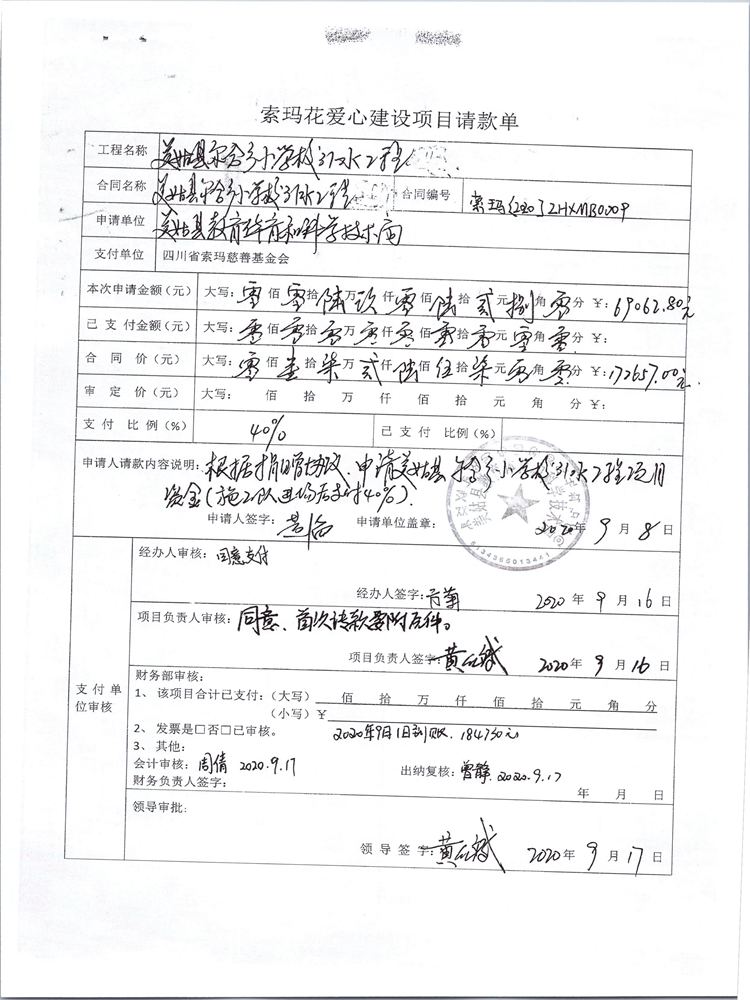 索玛花爱心建设项目请款单
工程名称 美姑县尔合乡小学校引水工程
合同名称 美姑县尔合乡小学校引水工程 合同编号 索玛 ZHXMB0009
申请单位 美姑县教育体育和科学技术局
支付单位 四川省索玛慈善基金会
本次申请金额（元） 大写：零佰零拾陆万玖仟零佰陆拾贰元捌角零分 ￥：69062.80元
已支付金额（元） 大写：零佰零拾零万零仟零佰零拾零元零角零分 ￥：
合同价（元） 大写：零佰壹拾柒万贰仟陆佰伍拾柒元零角零分 ￥：172657.00元
审定价（元） 大写： 佰 拾 万 仟 佰 拾 元 角 分 ￥：
支付比例（%） 40% 已支付比例（%）
申请人请款内容说明：根据捐赠协议，申请美姑县尔合乡小学校引水工程项目
资金（施工队进场后支付40%）.
申请人签字： 申请单位盖章： 2020年9月8日
5134360013441
支付单位审核
经办人审核：同意支付
经办人签字： 2020年9月16日
项目负责人审核：同意、首次请款要附合件。
项目负责人签字： 2020年9月16日
财务部审核：
1、 该项目合计已支付：（大写） 佰 拾 万 仟 佰 拾 元 角 分
（小写）￥
2、 发票是□否□已审核。 2020年9月1日到账，184730元
3、 其他：
会计审核：周倩 2020.9.17 出纳复核：曾静 2020.9.17
财务负责人签字： 年 月 日
领导审批：
领导签字： 2020年9月17日